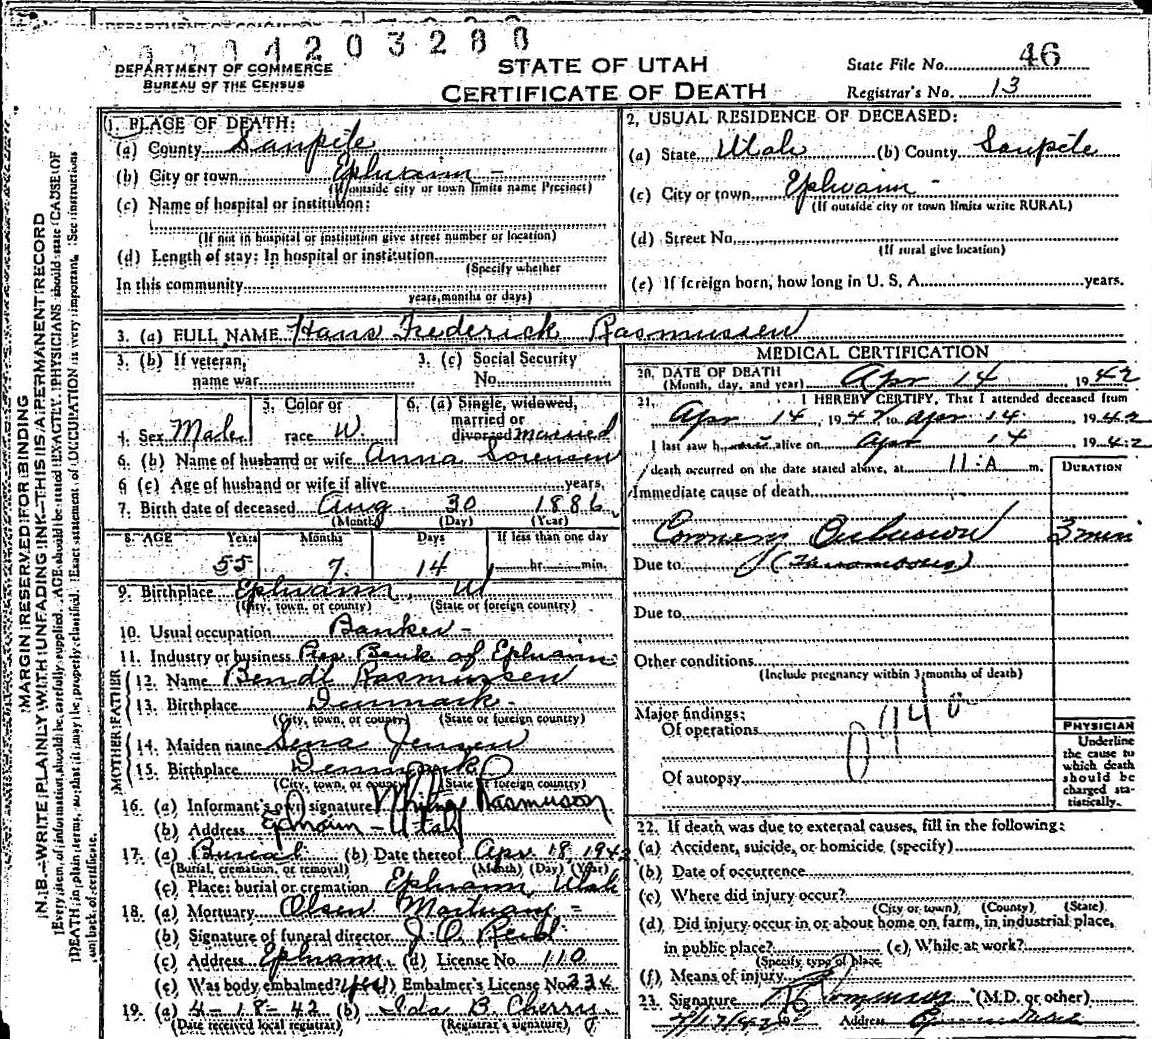 DEPARTMENT OF COMMERCE
BUREAU OF THE CENSUS
STATE OF UTAH
CERTIFICATE OF DEATH
State File No. 46
Registrar's No. 13
MARGIN RESERVED FOR BINDING
N. B.—WRITE PLAINLY WITH UNFADING INK—THIS IS A PERMANENT RECORD
Every item of information should be carefully supplied. AGE should be stated EXACTLY. PHYSICIANS should state CAUSE OF
DEATH in plain terms, so that it may be properly classified. Exact statement of OCCUPATION is very important. See instructions
on back of certificate.
1. PLACE OF DEATH:
(a) County Sanpete
(b) City or town Ephraim -
(If outside city or town limits name Precinct)
(c) Name of hospital or institution:
(If not in hospital or institution give street number or location)
(d) Length of stay: In hospital or institution
(Specify whether
In this community
years, months or days)
2. USUAL RESIDENCE OF DECEASED:
(a) State Utah (b) County Sanpete
(c) City or town Ephraim -
(If outside city or town limits write RURAL)
(d) Street No.
(If rural give location)
(e) If foreign born, how long in U. S. A. years.
3. (a) FULL NAME Hans Frederick Rasmussen
3. (b) If veteran, name war
3. (c) Social Security No.
4. Sex Male
5. Color or race W.
6. (a) Single, widowed, married or divorced married
6. (b) Name of husband or wife Anna Sorensen
6 (c) Age of husband or wife if alive years,
7. Birth date of deceased Aug 30 1886
(Month) (Day) (Year)
8. AGE Years Months Days If less than one day
55 7. 14 hr. min.
9. Birthplace Ephraim, Ut
(City, town, or county) (State or foreign country)
10. Usual occupation Banker -
11. Industry or business Pres Bank of Ephraim
FATHER
12. Name Bendt Rasmussen
13. Birthplace Denmark -
(City, town, or county) (State or foreign country)
MOTHER
14. Maiden name Sena Jensen
15. Birthplace Denmark
(City, town, or county) (State or foreign country)
16. (a) Informant's own signature Rasmussen
(b) Address Ephraim - Utah
17. (a) Burial (b) Date thereof Apr. 18, 1942
(Burial, cremation, or removal) (Month) (Day) (Year)
(c) Place: burial or cremation Ephraim, Utah
18. (a) Mortuary Olsen Mortuary -
(b) Signature of funeral director
(c) Address Ephraim. (d) License No. 110
(e) Was body embalmed? yes Embalmer's License No. 234
19. (a) 4-18-42 (b) Ida B. Cherry
(Date received local registrar) (Registrar's signature)
MEDICAL CERTIFICATION
20. DATE OF DEATH
(Month, day, and year) Apr 14, 1942
21. I HEREBY CERTIFY, That I attended deceased from
Apr 14, 1942 to Apr 14, 1942
I last saw h alive on Apr 14 1942
death occurred on the date stated above, at 11:A m.
DURATION
Immediate cause of death
Coronary Occlusion 3 min
Due to (Thrombosis)
Due to
Other conditions
(Include pregnancy within 3 months of death)
Major findings:
Of operations
Of autopsy
PHYSICIAN
Underline
the cause to
which death
should be
charged sta-
tistically.
22. If death was due to external causes, fill in the following:
(a) Accident, suicide, or homicide (specify)
(b) Date of occurrence
(c) Where did injury occur?
(City or town) (County) (State)
(d) Did injury occur in or about home on farm, in industrial place,
in public place? (e) While at work?
(Specify type of place
(f) Means of injury
23. Signature (M.D. or other)
Address